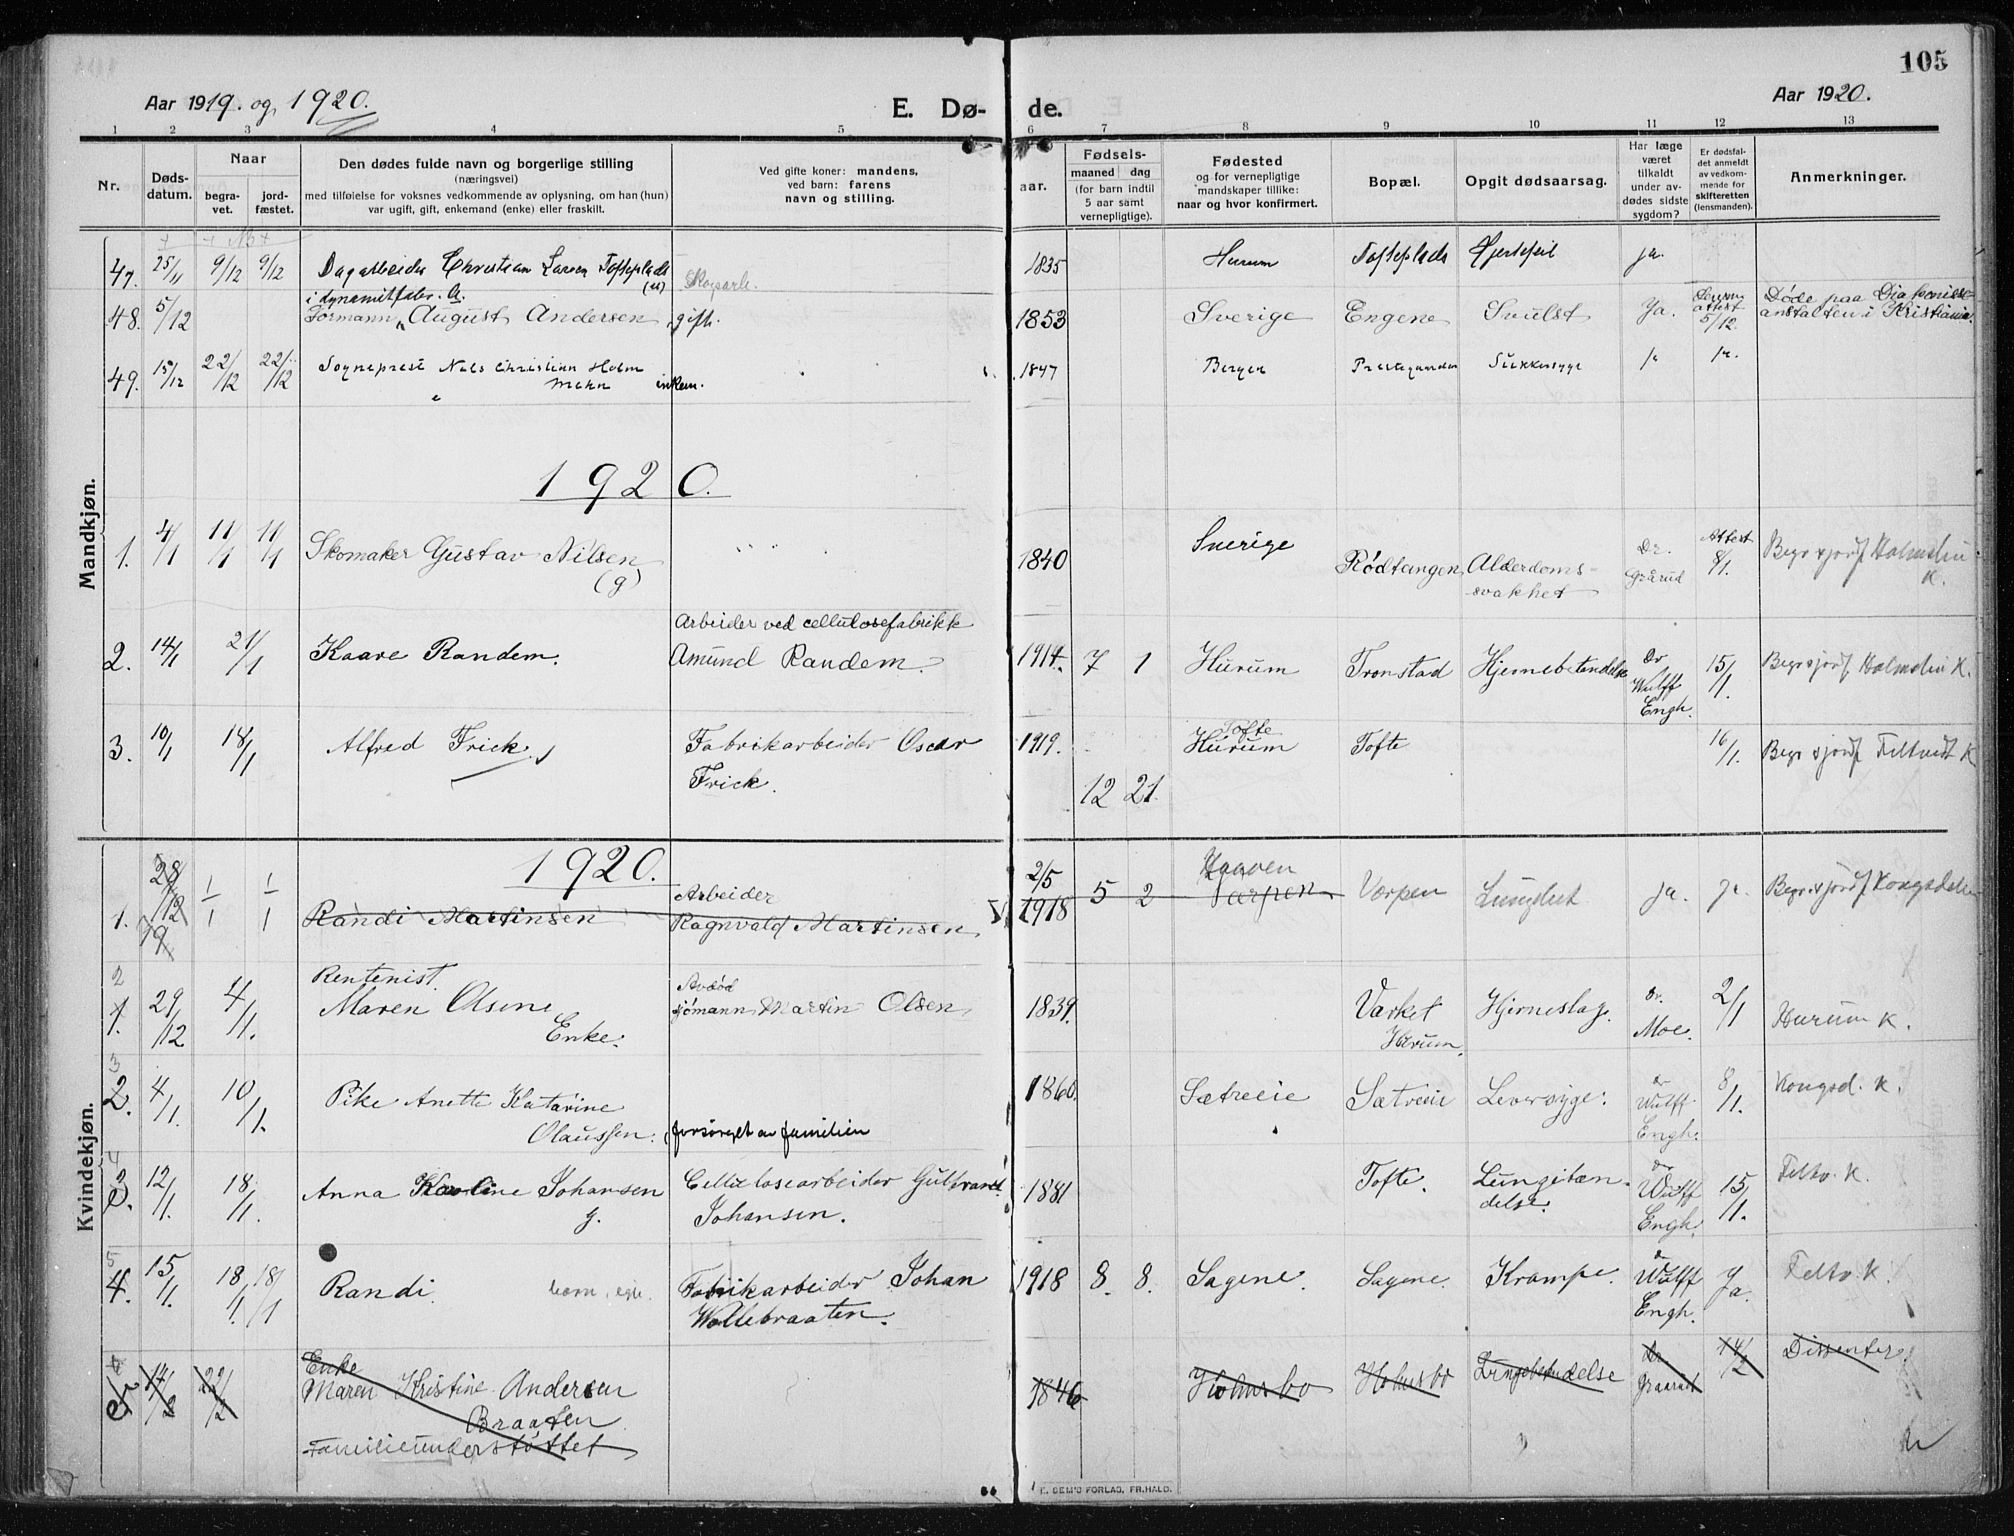 105
Aar 1919. og 1920.
E. Dø- de.
Aar 1920.
1 2 3 4 5 6 7 8 9 10 11 12 13
Nr.
Døds-
datum.
Naar
begra-
vet.
jord-
fæstet.
Den dødes fulde navn og borgerlige stilling
(næringsvei)
med tilføielse for voksnes vedkommende av oplysning, om han (hun)
var ugift, gift, enkemand (enke) eller fraskilt.
Ved gifte koner: mandens,
ved barn: farens
navn og stilling.
aar.
Fødsels-
maaned dag
(for barn indtil
5 aar samt
vernepligtige).
Fødested
og for vernepligtige
mandskaper tillike:
naar og hvor konfirmert.
Bopæl.
Opgit dødsaarsag.
Har læge
været
tilkaldt
under av-
dødes sidste
sygdom?
Er dødsfal-
det anmeldt
av vedkom-
mende for
skifteretten
(lensmanden).
Anmerkninger.
Mandkjøn.
47. 25/11 9/12 9/12 Dagarbeider Christian Larsen Tofteplads 1835 Hurum Tofteplads Hjertefeil ja.
i dynamitfabr.
48. 5/12 Formann August Andersen, gift. 1853 Sverige Engene Svulst Ja. attest 5/12. Døde paa Diakonisse-
anstalten i Kristiania.
49. 15/12 22/12 22/12 Sogneprest Nils Christian Holm 1847 Bergen Sukkersyge
Mohn enkem.
1920.
1. 4/1 11/1 11/1 Skomaker Gustav Nilsen (g) 1840 Sverige Rödtangen Alderdoms-
svakhet Dr. Grårud Attest 8/1. Begr sjordf Holmsbu K.
Arbeider ved cellulosefabrikk
2. 14/1 21/1 Kaare Randem. Amund Randem. 1914. 7 1 Hurum Tronstad Hjernebetændelse Dr Wulff Engh. 15/1. Begr sjordf Holmsbu K.
3. 10/1 18/1 Alfred Frick. Fabrikarbeider Oscar 1919. Tofte Hurum Tofte 16/1. Begr sjordf Filtvedt K
Frick. 12 21.
Kvindekjøn.
1920.
1. 28/12 19 1/1 1/1 Randi Martinsen Arbeider
Ragnvald Martinsen 2/5 1918 5 2 Haaven Værpen Værpen Lunglest ja. ja. Begr. sjordf Kongsdelen
2 1. 29/12 4/1. Rentenist.
Maren Olsine Enke. Avdød
sjömann Martin Olsen, 1839. Varket Hurum, Hjerneslag. Dr. Moe. 2/1 Hurum K.
3 2. 4/1. 10/1. Pike Anette Katarine
Olaussen. forsørget av familien 1860. Sætreeie Sætreeie Leversyge. dr Wulff Engh. 8/1. Kongsd. K.
4 3. 12/1. 18/1. Anna Karoline Johansen g. Cellulosearbeider Gultvard
Johansen. 1881 Tofte. Lungetæn-
delse. dr Wulff Engh. 15/1. Filtv. K.
5 4. 15/1. 18/1. 18/1 Randi. barn, egte. Fabrikarbeider Johan
Wollebraaten. 1918 8. 8. Sagene. Sagene. Krampe. dr Wulff Engh. Ja. Filtv. K.
5 14/2 22/2 Enke
Maren Kristine Andersen
Braaten
Familieunderstøttet 1846 Holmsbo Holmsbo Lungebetændelse dr Graarud 14/2 Dissenter
E. SEM'S FORLAG, FR.HALD.